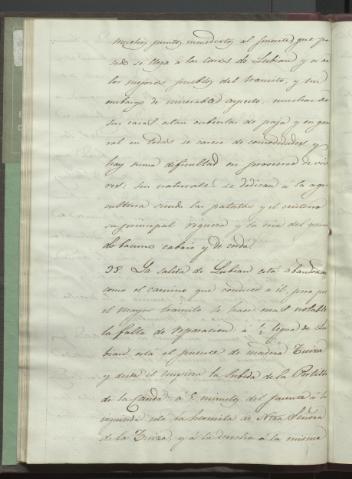 muchos puntos inmediatos al puente que pa-
sado se llega a las casas de Lubian y es de
los mejores pueblos del transito, y sin
embargo de miserable aspecto, muchas de
sus casas estan cubiertas de paja y en gene-
ral en todas se carece de comodidades y
hay suma dificultad en proveerse de vive-
res: sus naturales se dedican a la agri-
cultura siendo las patatas y el centeno
su principal riqueza y la cria del gana-
do bacuno cabrio y de cerda.
28. La salida de Lubian esta abandonada
como el camino que conduce a él, pero por
el mayor transito se hace mas notable
la falta de reparacion. à ½ legua de Lu-
bian esta el puente de madera Tuiza
y desde él empieza la subida de la Portilla
de la Canda: à 5 minutos del puente à la
izquierda esta la hermita de Ntra Señora
de la Tuiza, y à la derecha à la misma